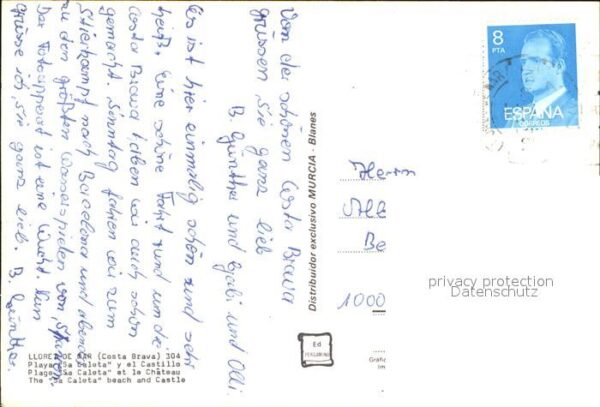 Von der schönen Costa Brava
grüssen Sie ganz lieb
B. Günther und Gabi und Olli.
Es ist hier einmalig schön und sehr
heiß. Eine schöne Fahrt rund um die
Costa Brava haben wir auch schon
gemacht. Sonntag fahren wir zum
Stierkampf nach Barcelona und abends
zu den größten Wasserspielen von Spanien.
Der Fotoapparat ist eine Wucht. Nun
grüsse ich, Sie ganz lieb. B. Günther.
8
PTA
ESPAÑA
CORREOS
Distribuidor exclusivo MURCIA - Blanes
Herrn
Alb
Be
1000
privacy protection
Datenschutz
Ed
PERGAMINO
Gráfic
Im
LLORET DE MAR (Costa Brava) 304
Playa "Sa Caleta" y el Castillo
Plage "Sa Caleta" et le Château
The "Sa Caleta" beach and Castle